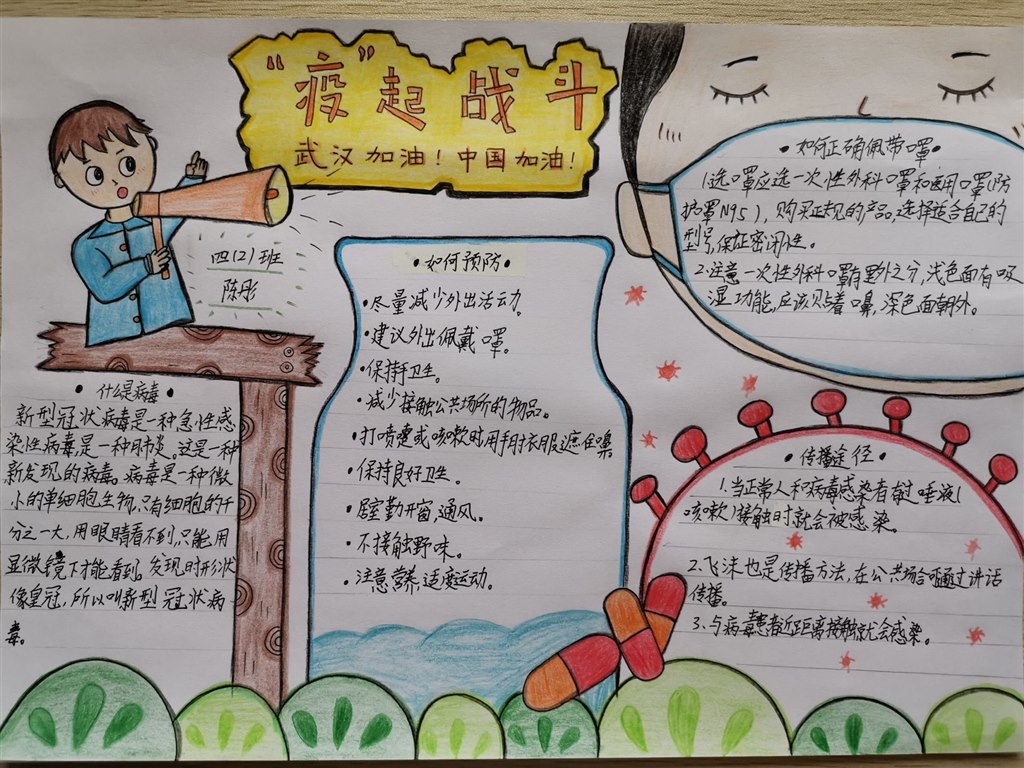 “疫”起战斗
武汉加油！中国加油！
四(2)班
陈彤
•什么是病毒•
新型冠状病毒是一种急性感
染性病毒，是一种肺炎。这是一种
新发现的病毒。病毒是一种微
小的单细胞生物，只有细胞的千
分之一大，用眼睛看不到，只能用
显微镜下才能看到。发现时形状
像皇冠，所以叫新型冠状病
毒。
•如何预防•
•尽量减少外出活动。
•建议外出佩戴口罩。
•保持手卫生。
•减少接触公共场所的物品。
•打喷嚏或咳嗽时用手用衣服遮住口鼻
•保持良好卫生。
•居室勤开窗，通风。
•不接触野味。
•注意营养，适度运动。
•如何正确佩带口罩•
1.选口罩应选一次性外科口罩和医用口罩（防
护罩N95），购买正规的产品，选择适合自己的
型号，保证密闭性。
2.注意一次性外科口罩有里外之分，浅色面有吸
湿功能，应该贝占着口鼻，深色面朝外。
•传播途径•
1.当正常人和病毒感染者有过唾液（
咳嗽）接触时就会被感染。
2.飞沫也是传播方法，在公共场合吧通过讲话
传播。
3.与病毒患者近距离接触就会感染。